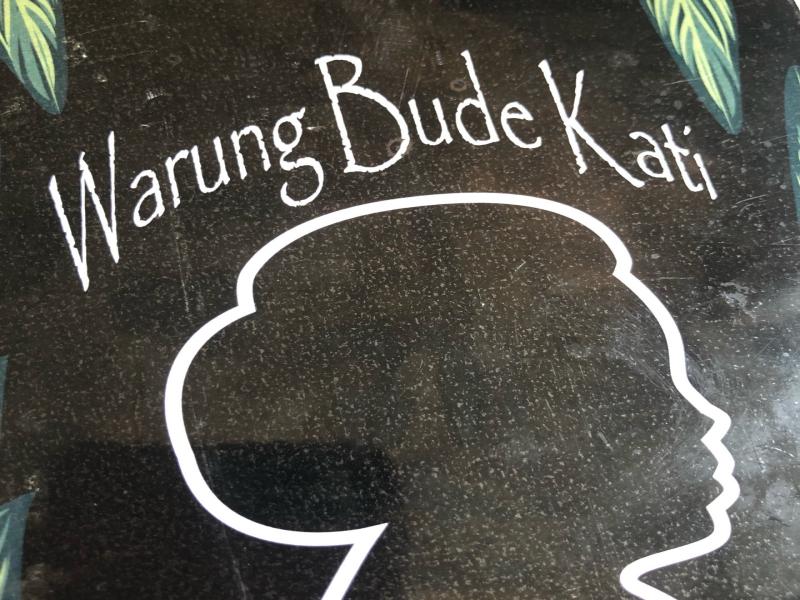 Warung Bude Kati